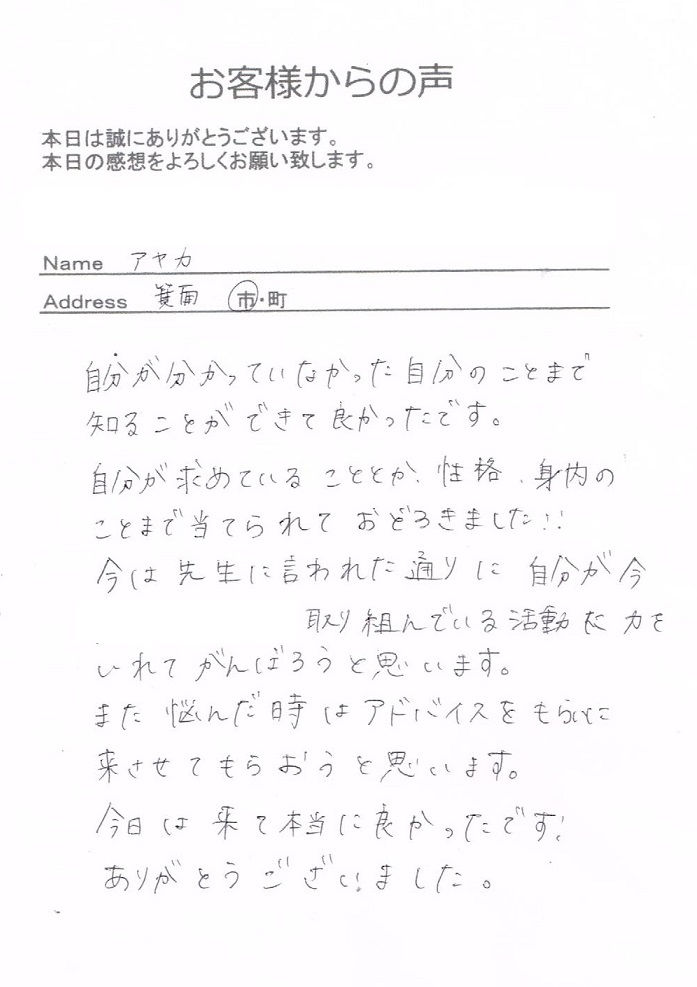 お客様からの声
本日は誠にありがとうございます。
本日の感想をよろしくお願い致します。
Name アヤカ
Address 箕面 市・町
自分が分かっていなかった自分のことまで
知ることができて良かったです。
自分が求めていることとか、性格、身内の
ことまで当てられておどろきました!!
今は先生に言われた通りに自分が今
取り組んでいる活動に力を
いれてがんばろうと思います。
また悩んだ時はアドバイスをもらいに
来させてもらおうと思います。
今日は来て本当に良かったです!
ありがとうございました。